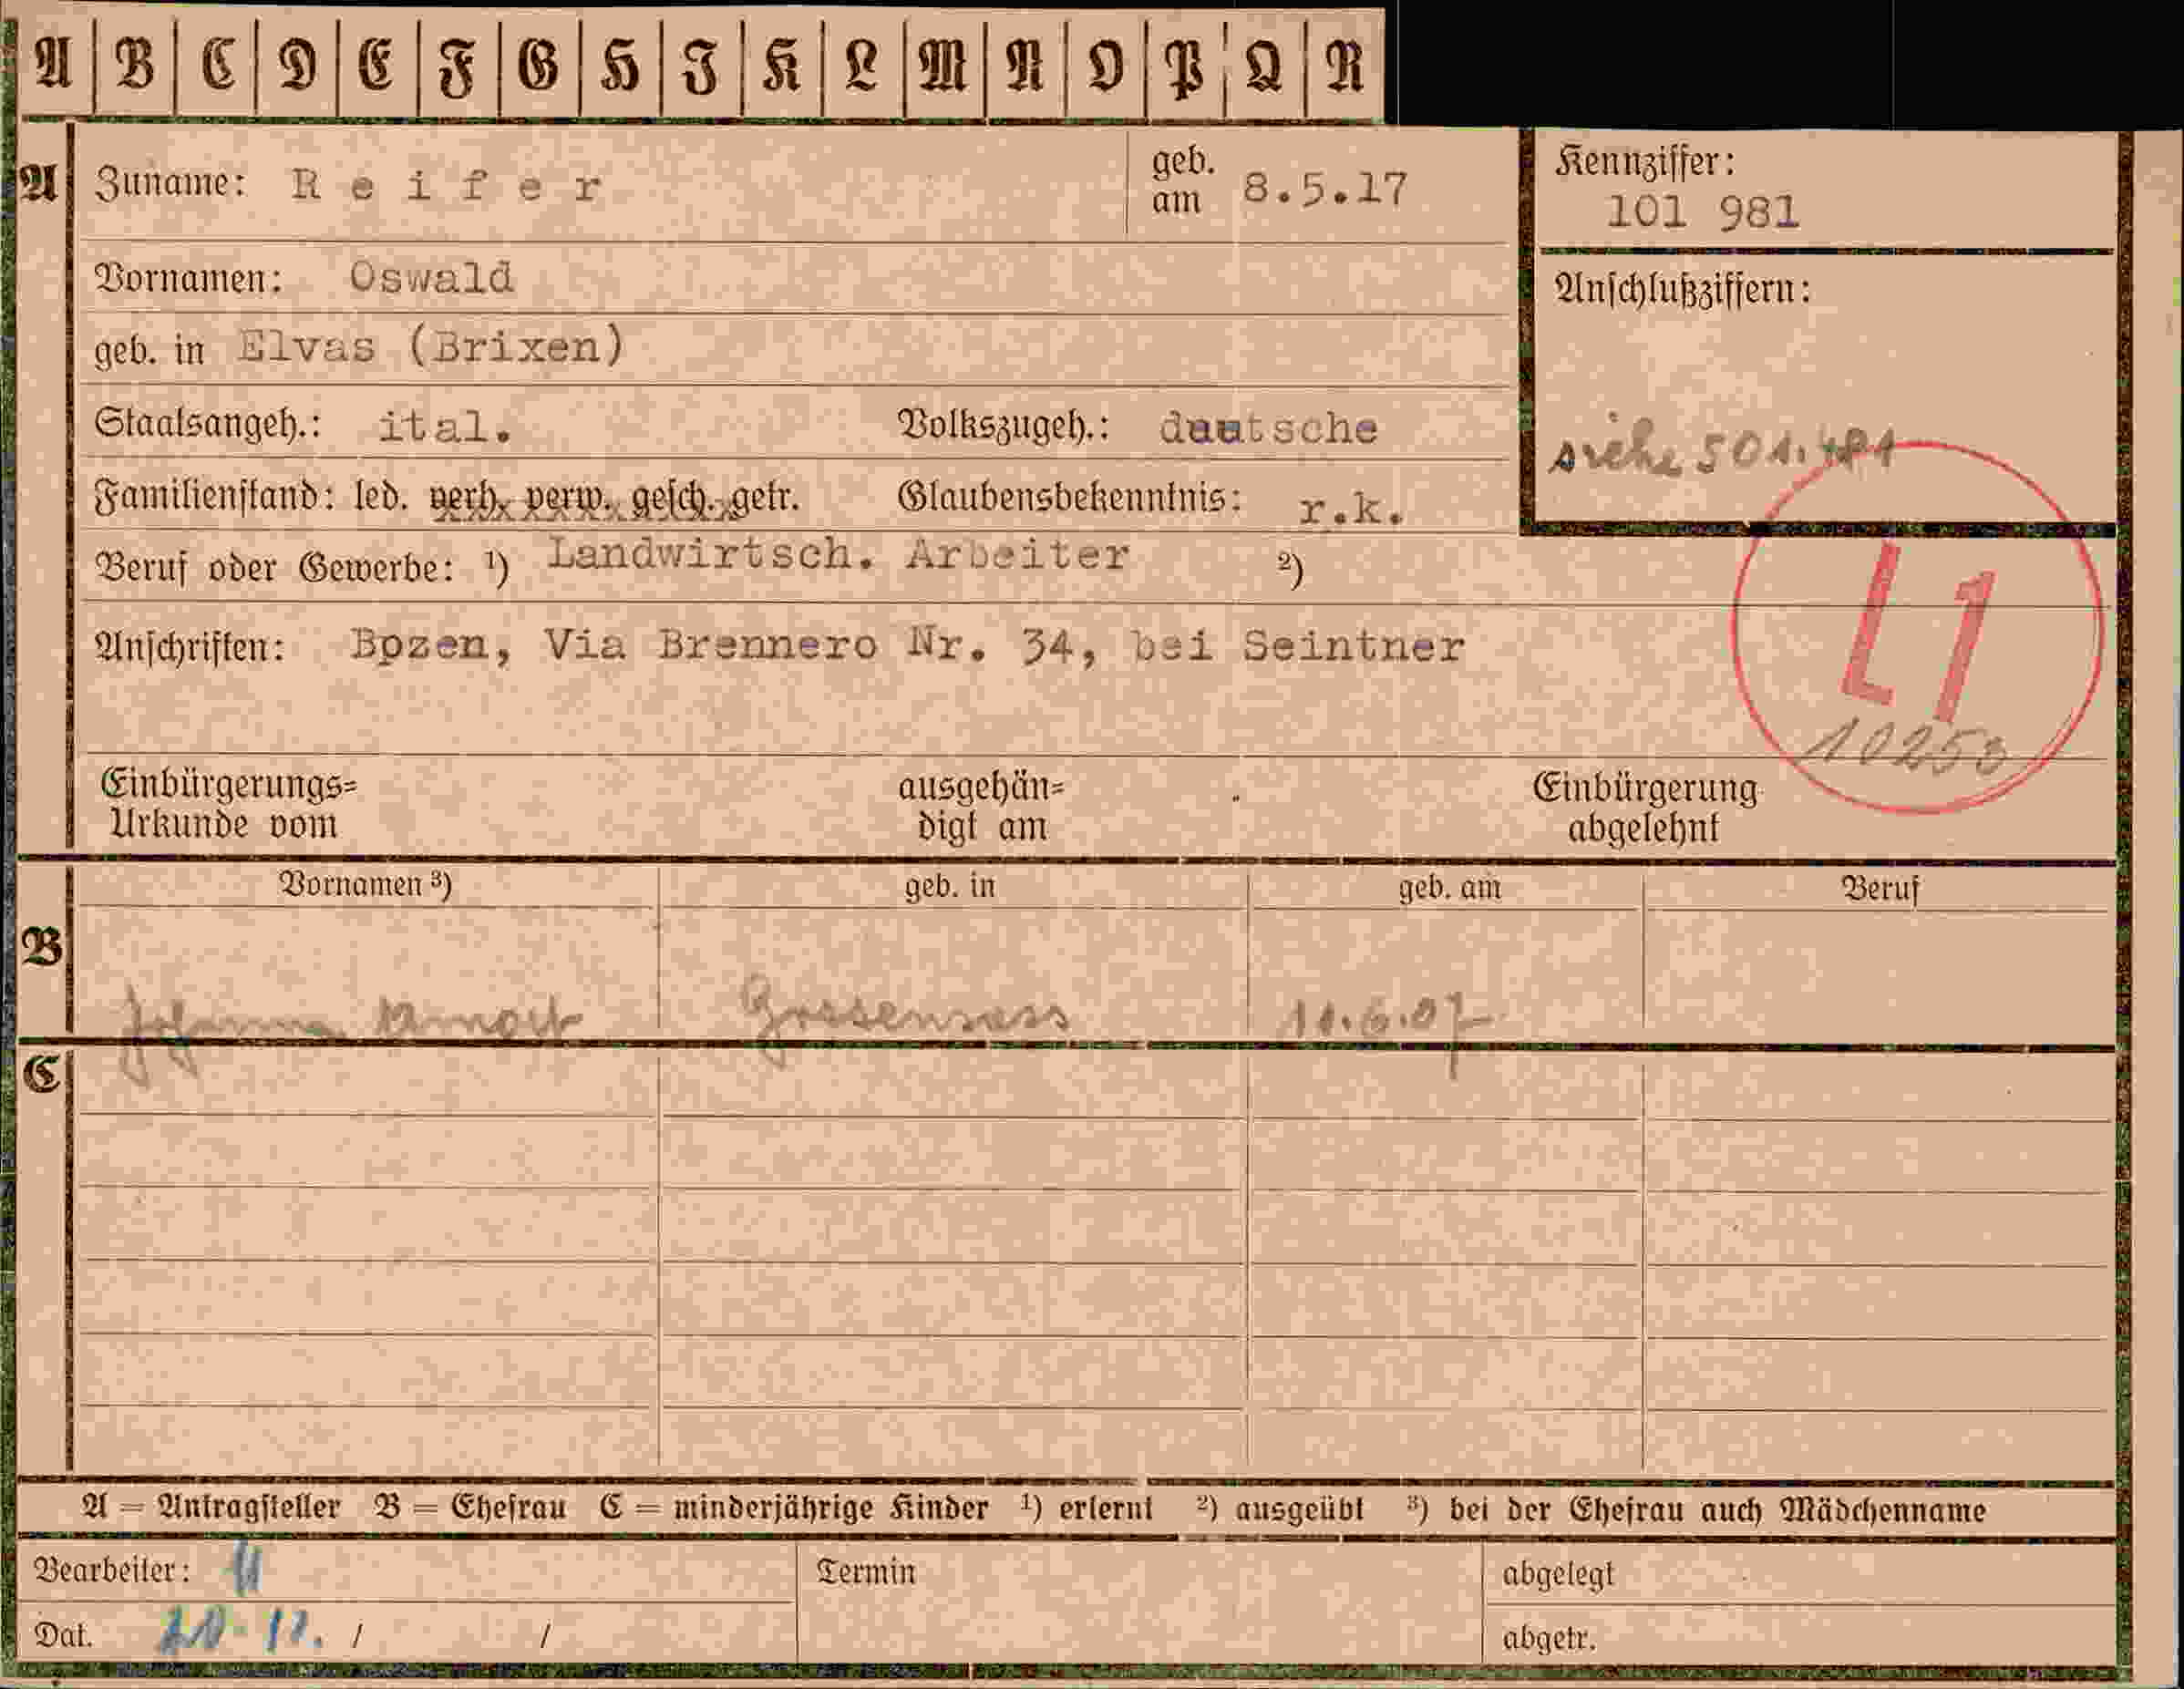 A B C D E F G H I K L M N O P Q R
A Zuname: Reifer geb. am 8.5.17
Kennziffer: 101 981
Vornamen: Oswald
Anschlußziffern:
geb. in Elvas (Brixen)
Staatsangeh.: ital. Volkszugeh.: deutsche
siehe 501.481
Familienstand: led. verh. verw. gesch. getr. Glaubensbekenntnis: r.k.
Beruf oder Gewerbe: ¹) Landwirtsch. Arbeiter ²)
L 1
Anschriften: Bozen, Via Brennero Nr. 34, bei Seintner
10253
Einbürgerungs=
Urkunde vom
ausgehän=
digt am
Einbürgerung
abgelehnt
Vornamen ³) geb. in geb. am Beruf
B
Johanna Gossensass 11.6.07
C
A = Antragsteller B = Ehefrau C = minderjährige Kinder ¹) erlernt ²) ausgeübt ³) bei der Ehefrau auch Mädchenname
Bearbeiter: Termin abgelegt
Dat. / / abgetr.